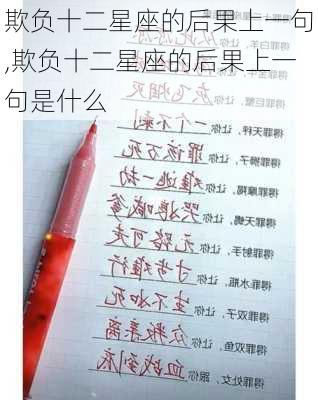 欺负十二星座的后果上一句
,欺负十二星座的后果上一
句是什么
得罪白羊，让你
得罪巨蟹，让你灰飞烟灭
得罪天秤，让你一个不剩
得罪狮子，让你罪该万死
得罪摩羯，让你难逃一劫
得罪天蝎，让你
得罪射手，让你无路可走
得罪水瓶，让你寸步难行
得罪双子，让你生不如死
得罪双鱼，让你众叛亲离
得罪处女，跟你血战到底